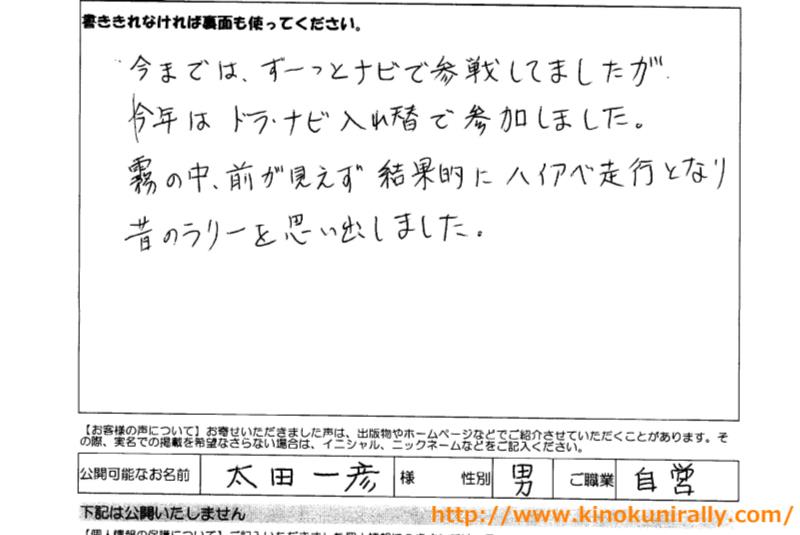 書ききれなければ裏面も使ってください。
今までは、ずーっとナビで参戦してましたが
今年は ドラ・ナビ入れ替で参加しました。
霧の中、前が見えず 結果的に ハイアベ走行となり
昔のラリーを思い出しました。
【お客様の声について】お寄せいただきました声は、出版物やホームページなどでご紹介させていただくことがあります。そ
の際、実名での掲載を希望なさらない場合は、イニシャル、ニックネームなどをご記入ください。
公開可能なお名前 太田一彦 様 性別 男 ご職業 自営
下記は公開いたしません
http://www.kinokunirally.com/